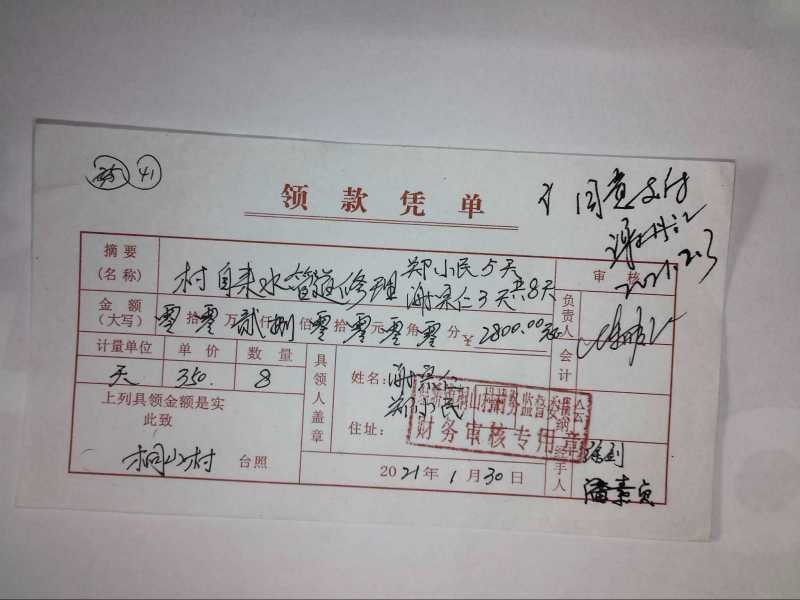 41
领款凭单
同意支付
2021.2.3
摘要
(名称)
村自来水管道修理
郑小民5天
谢荣仁3天 共8天
审核
金额
(大写)
零拾零万贰仟捌佰零拾零元零角零分 ¥2800.00元
负责人
计量单位 单价 数量
天 350. 8
具领人盖章
姓名: 谢荣仁
郑小民
住址:
会计
出纳
财务审核专用章
上列具领金额是实
此致
桐山村 台照
2021年1月30日
经手人
潘素贞